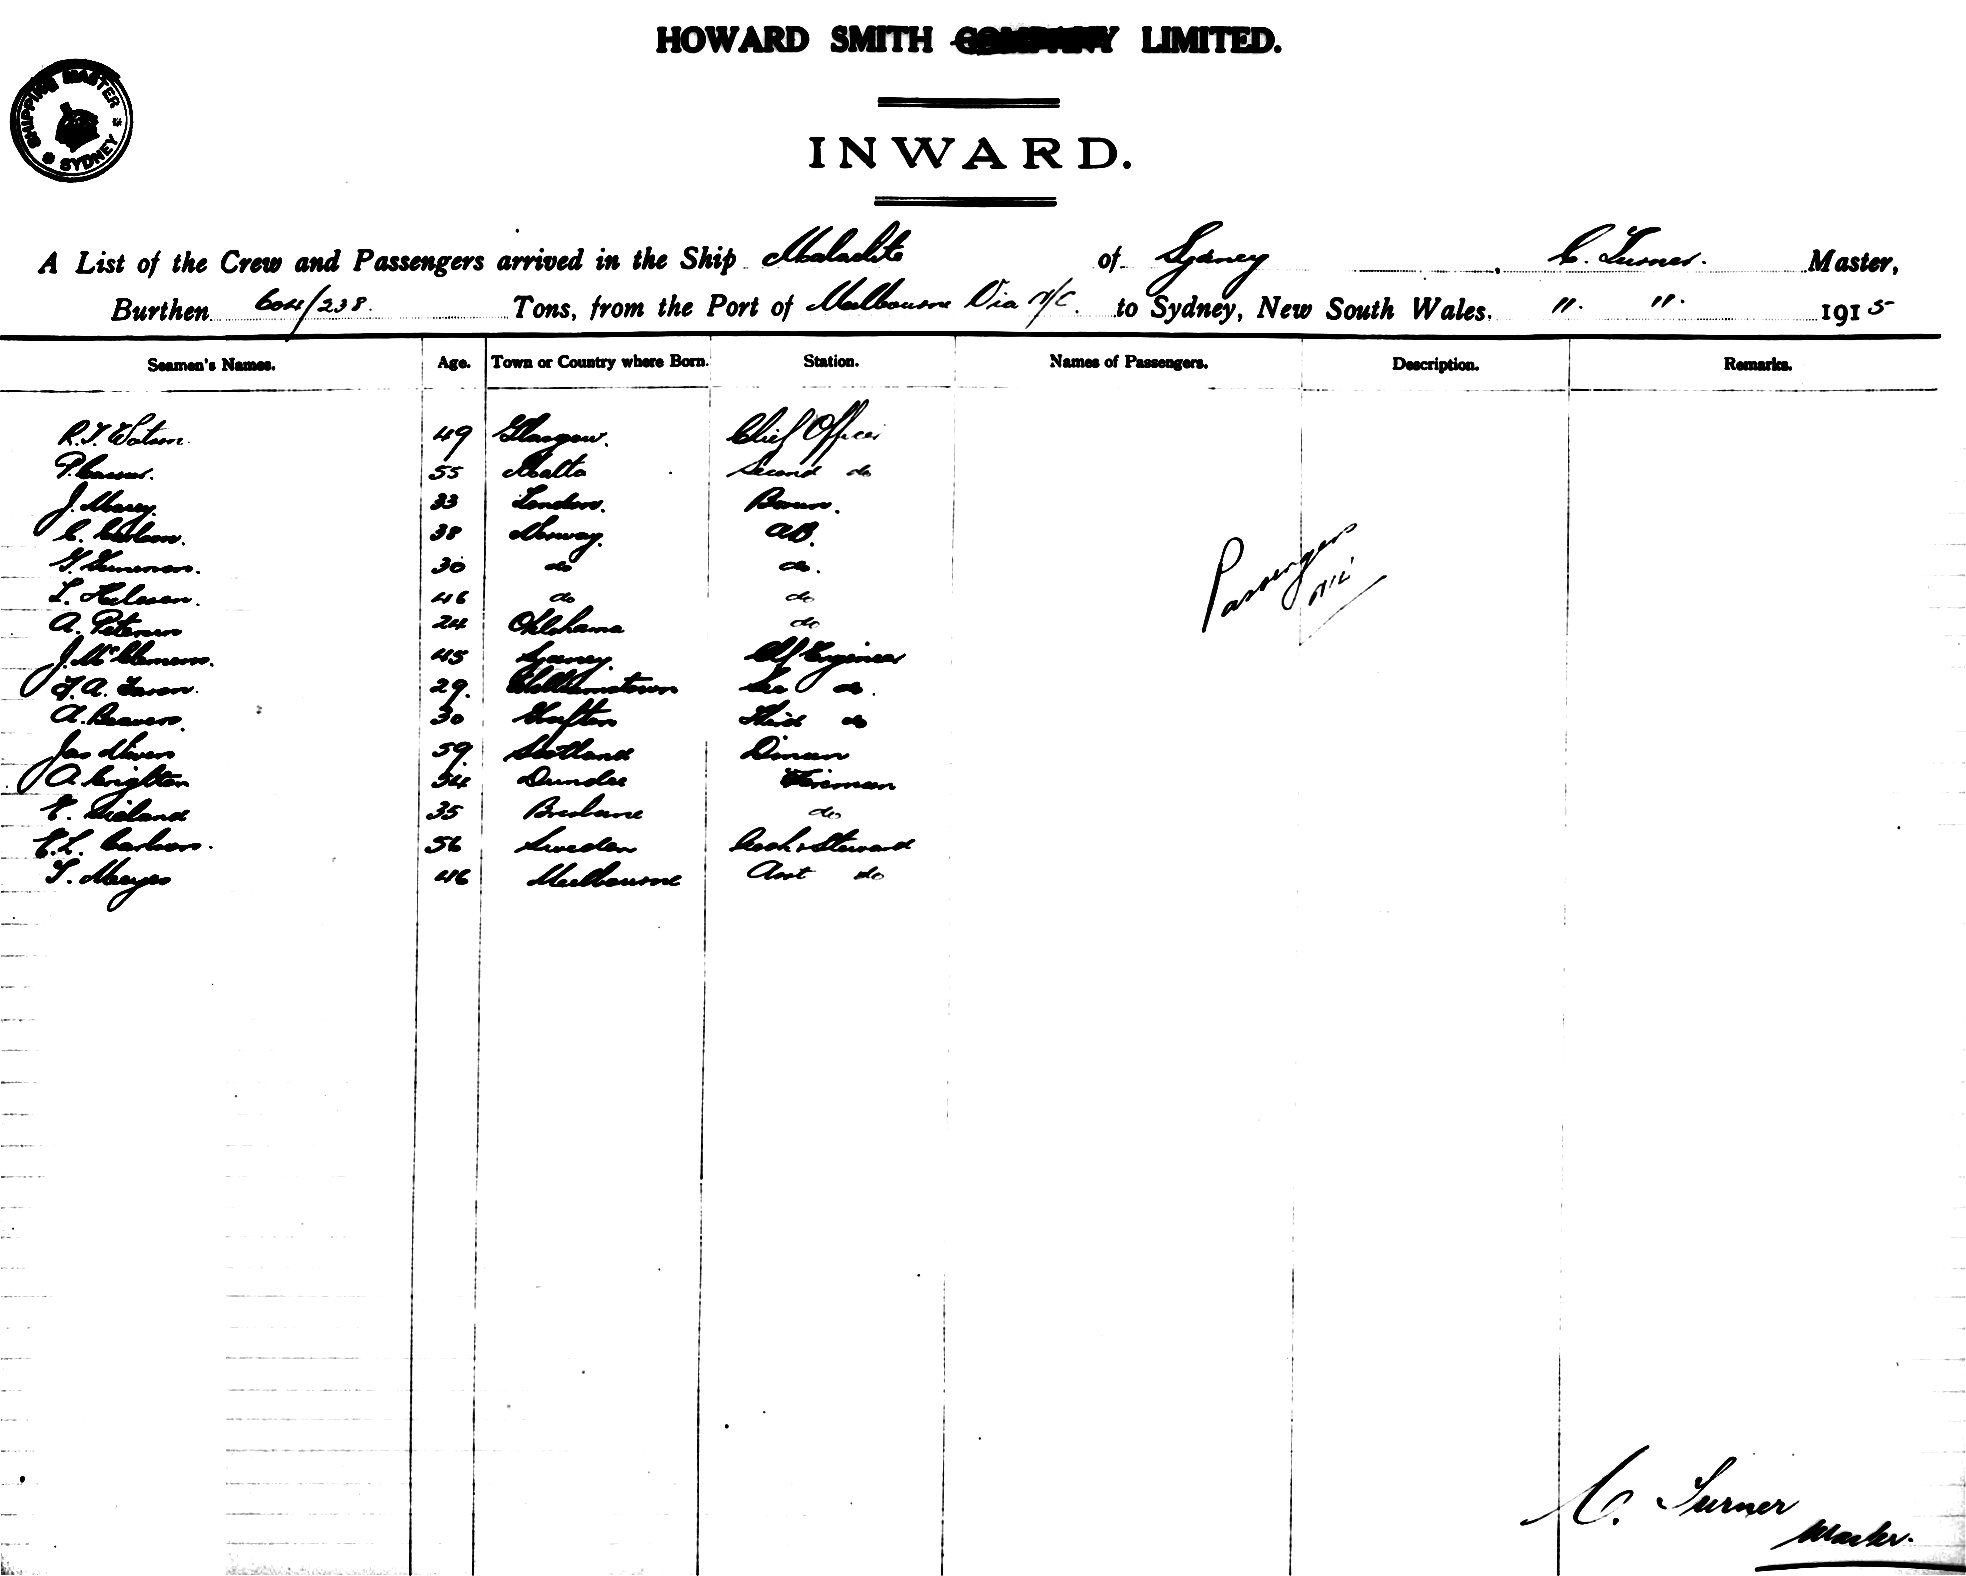 HOWARD SMITH COMPANY LIMITED.
SHIPPING MASTER SYDNEY
INWARD.
A List of the Crew and Passengers arrived in the Ship Malachite of Sydney, C. Turner. Master,
Burthen 604/238. Tons, from the Port of Melbourne Via N/C. to Sydney, New South Wales. " " 1915
Seamen's Names. Age. Town or Country where Born. Station. Names of Passengers. Description. Remarks.
49 Glasgow. Chief Officer
55 Malta Second do
33 London. Bosun.
38 Norway. AB.
30 do do.
L. 46 do do
A. Petersen 24 Oklohama do
J. McClemens. 45 Sydney. Chf Engineer
29. Williamstown Sec do.
A. Beavers. 30 Grafton Third do
Jas Niven 59. Scotland Dman
A. Crighton 54 Dundee Fireman
E. 35 Brisbane do
E.L. Carlson. 56 Sweden Cook & Steward
46 Melbourne Asst do
Passengers
nil
C. Turner
Master.